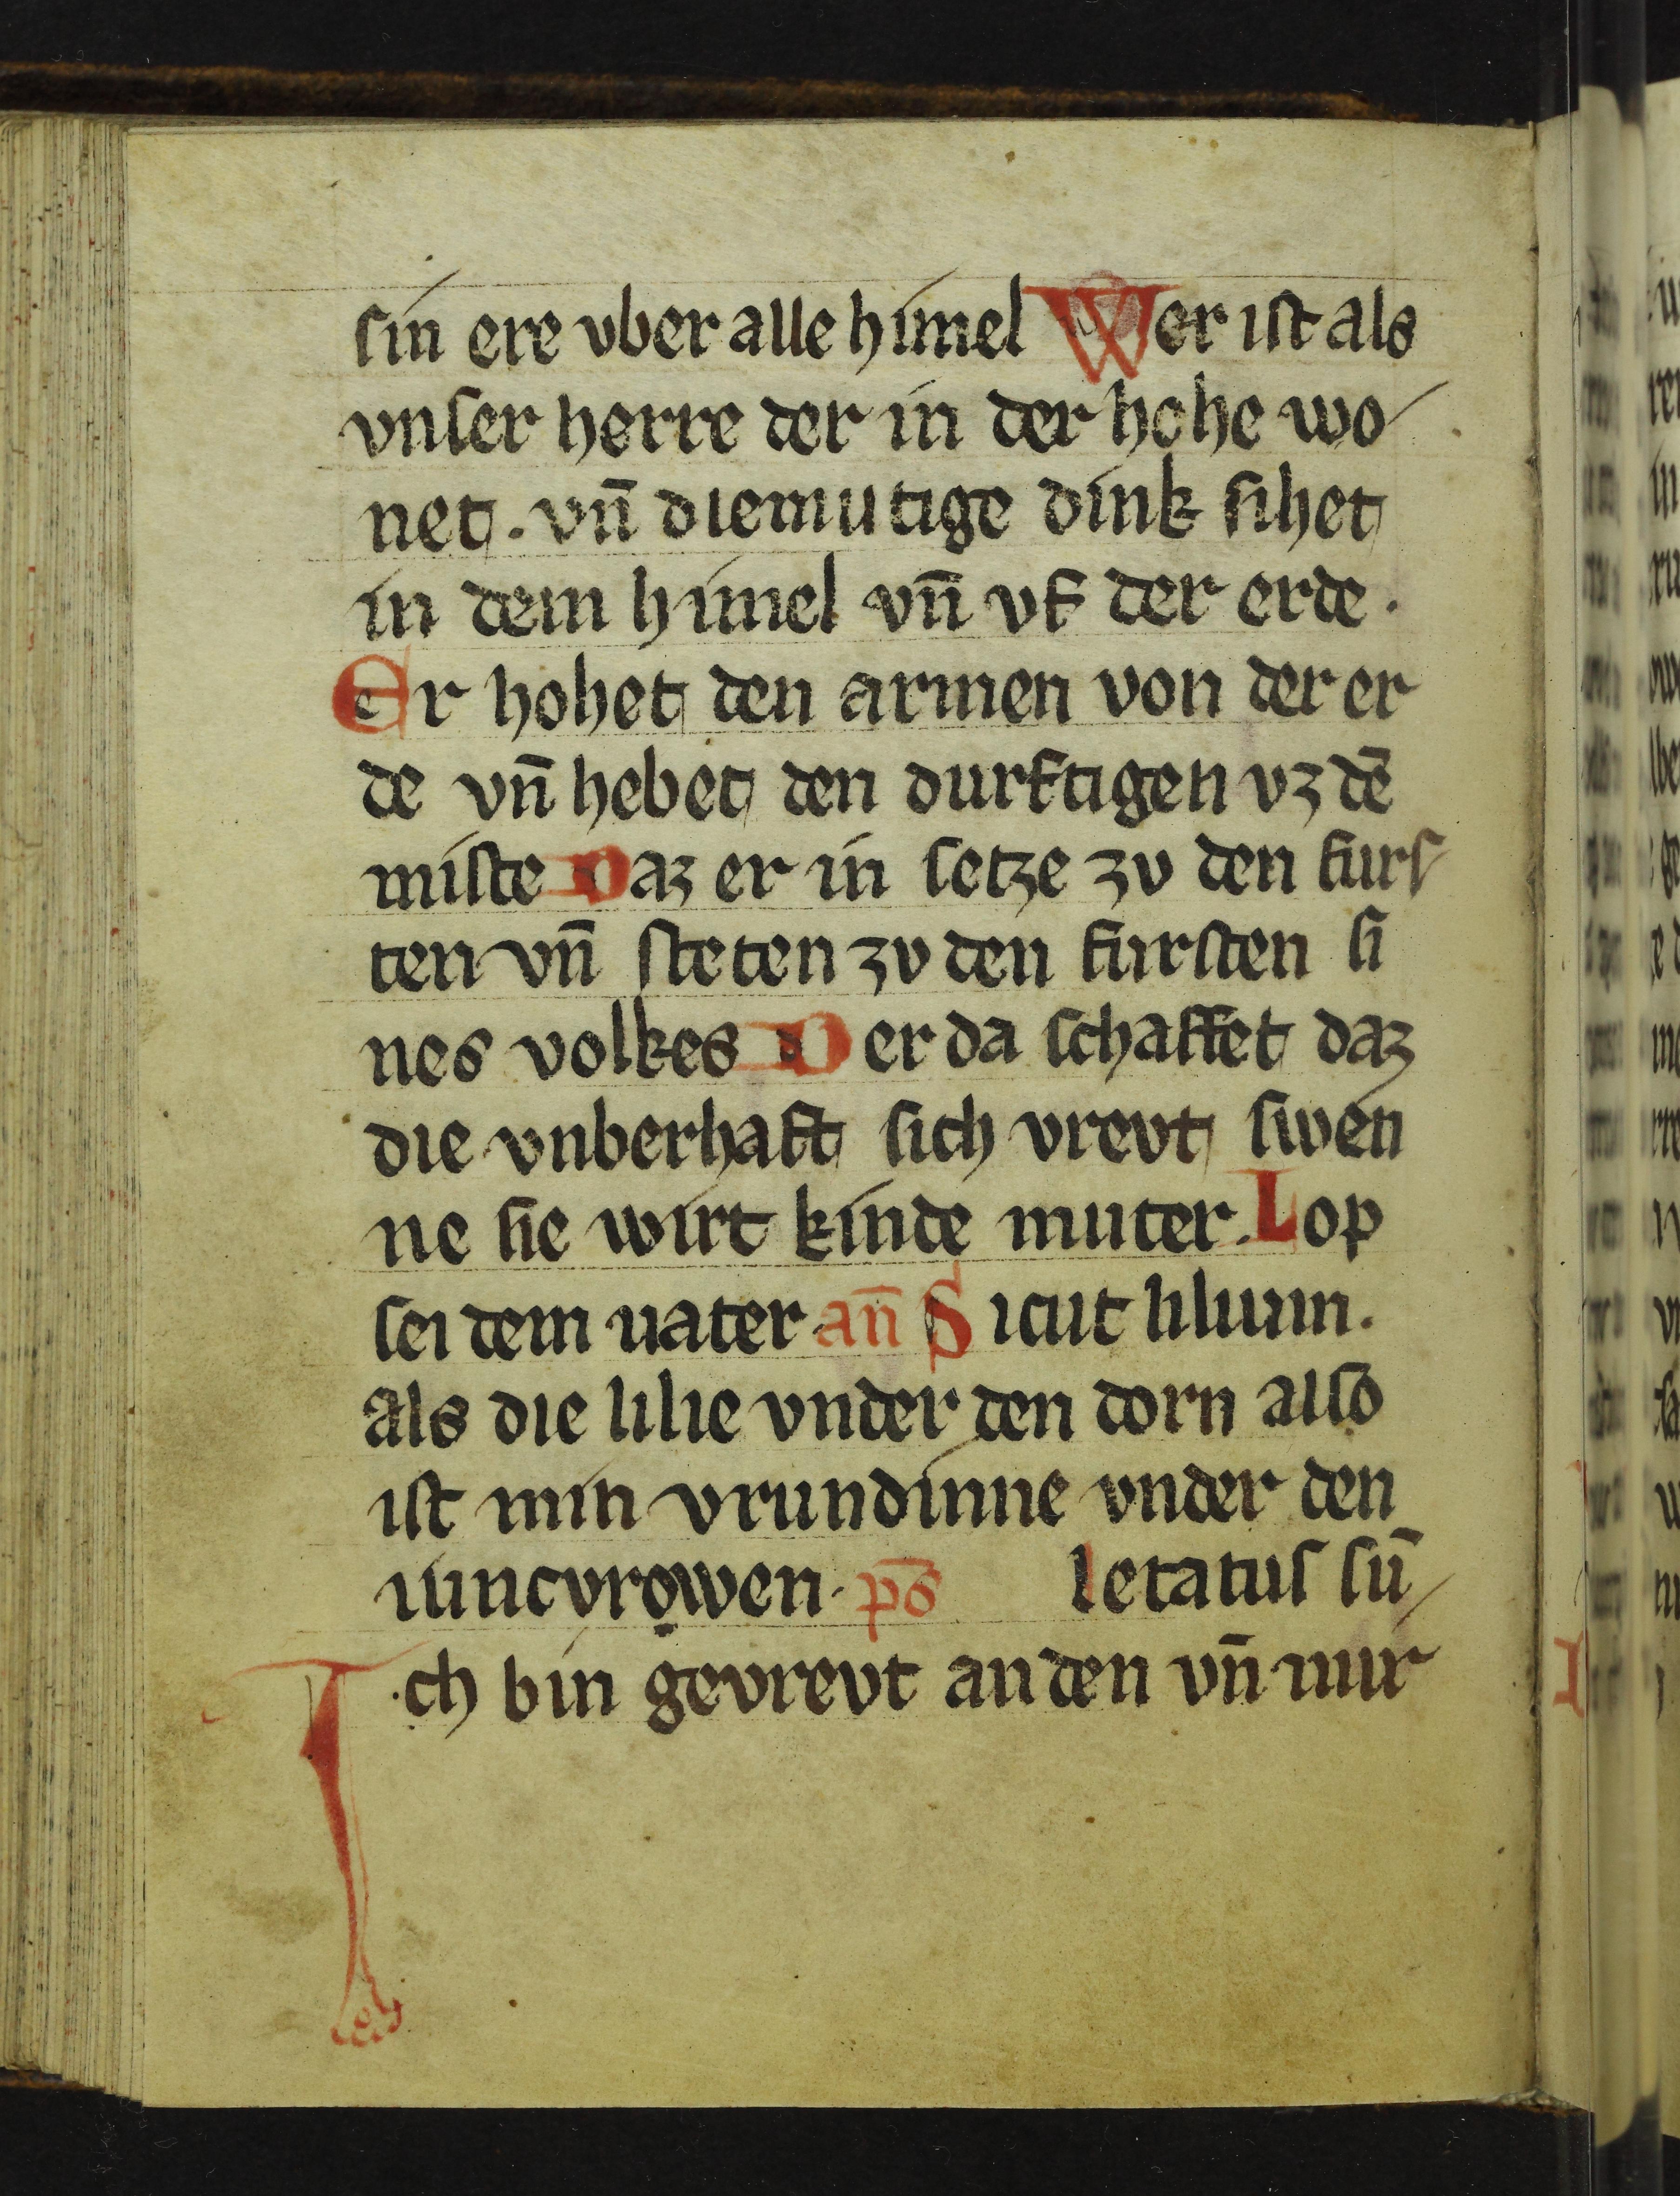 sin ere vber alle himel Wer ist als
vnser herre der in der hohe wo
net. vn̄ diemutige dink sihet
in dem himel vn̄ vf der erde.
Er hohet den armen von der er
de vn̄ hebet den durftigen vz dē
miste Daz er in setze zv den furs
ten vn̄ steten zv den fursten si
nes volkes Der da schaffet daz
die vnberhaft sich vrevt swen
ne sie wirt kinde muter. Lop
sei dem uater an̄ Sicut lilium.
als die lilie vnder den dorn also
ist min vrundinne vnder den
iuncvrowen. ps̄ letatus sū
Ich bin gevrevt an den vn̄ mir